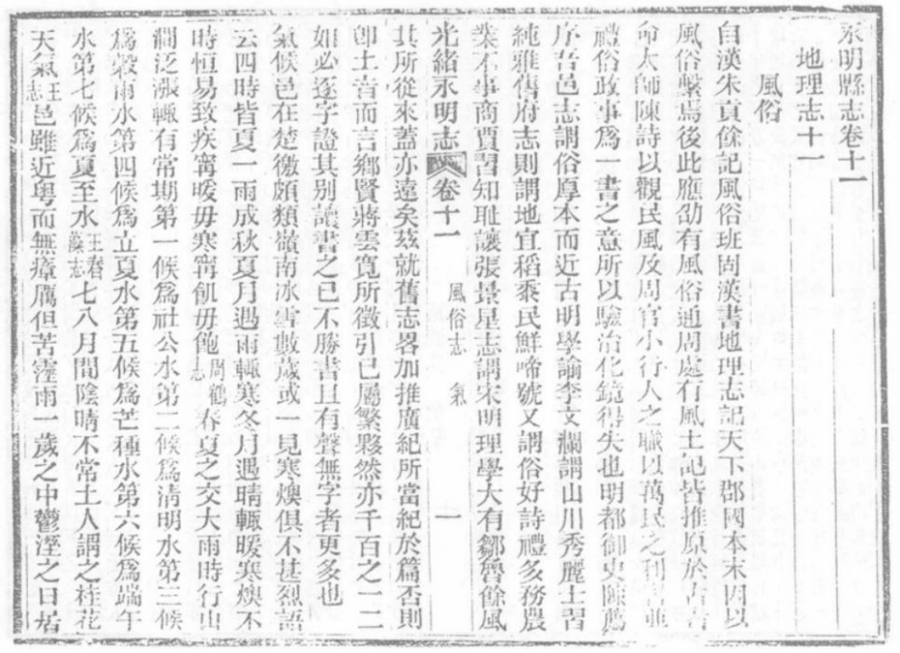 永明縣志卷十一
地理志十一
風俗
自漢朱貢條記風俗班固漢書地理志記天下郡國本末因以
風俗繫焉後此應劭有風俗通周處有風土記皆推原於
命太師陳詩以觀民風及周官小行人之職以萬民之利
禮俗政事爲一書之意所以驗治化鏡得失也明都御史陳薦
序吾邑志謂俗厚本而近古明學諭李文瀾謂山川秀麗士習
純雅舊府志則謂地宜稻黍民鮮啼號又謂俗好詩禮多務農
業不事商賈習知恥讓張景星志謂宋明理學大有鄒魯餘風
光緒永明志 卷十一 風俗志 氣 一
其所從來蓋亦遠矣茲就舊志畧加推廣紀所當紀於篇否則
卽土音而言鄉賢蔣雲寬所徵引已屬繁夥然亦千百之一二
如必逐字證其別讀書之已不勝書且有聲無字者更多也
氣候邑在楚徼頗類嶺南冰雪數歲或一見寒燠俱不甚烈語
云四時皆夏一雨成秋夏月遇雨輒寒冬月遇晴輒暖寒燠不
時恒易致疾寧暖毋寒寧飢毋飽周鶴志春夏之交大雨時行山
澗泛漲輒有常期第一候爲社公水第二候爲清明水第三候
爲穀雨水第四候爲立夏水第五候爲芒種水第六候爲端午
水第七候爲夏至水王春藻志七八月間陰晴不常土人謂之桂花
天氣王志邑雖近粤而無瘴癘但苦霪雨一歲之中鬱溼之日居